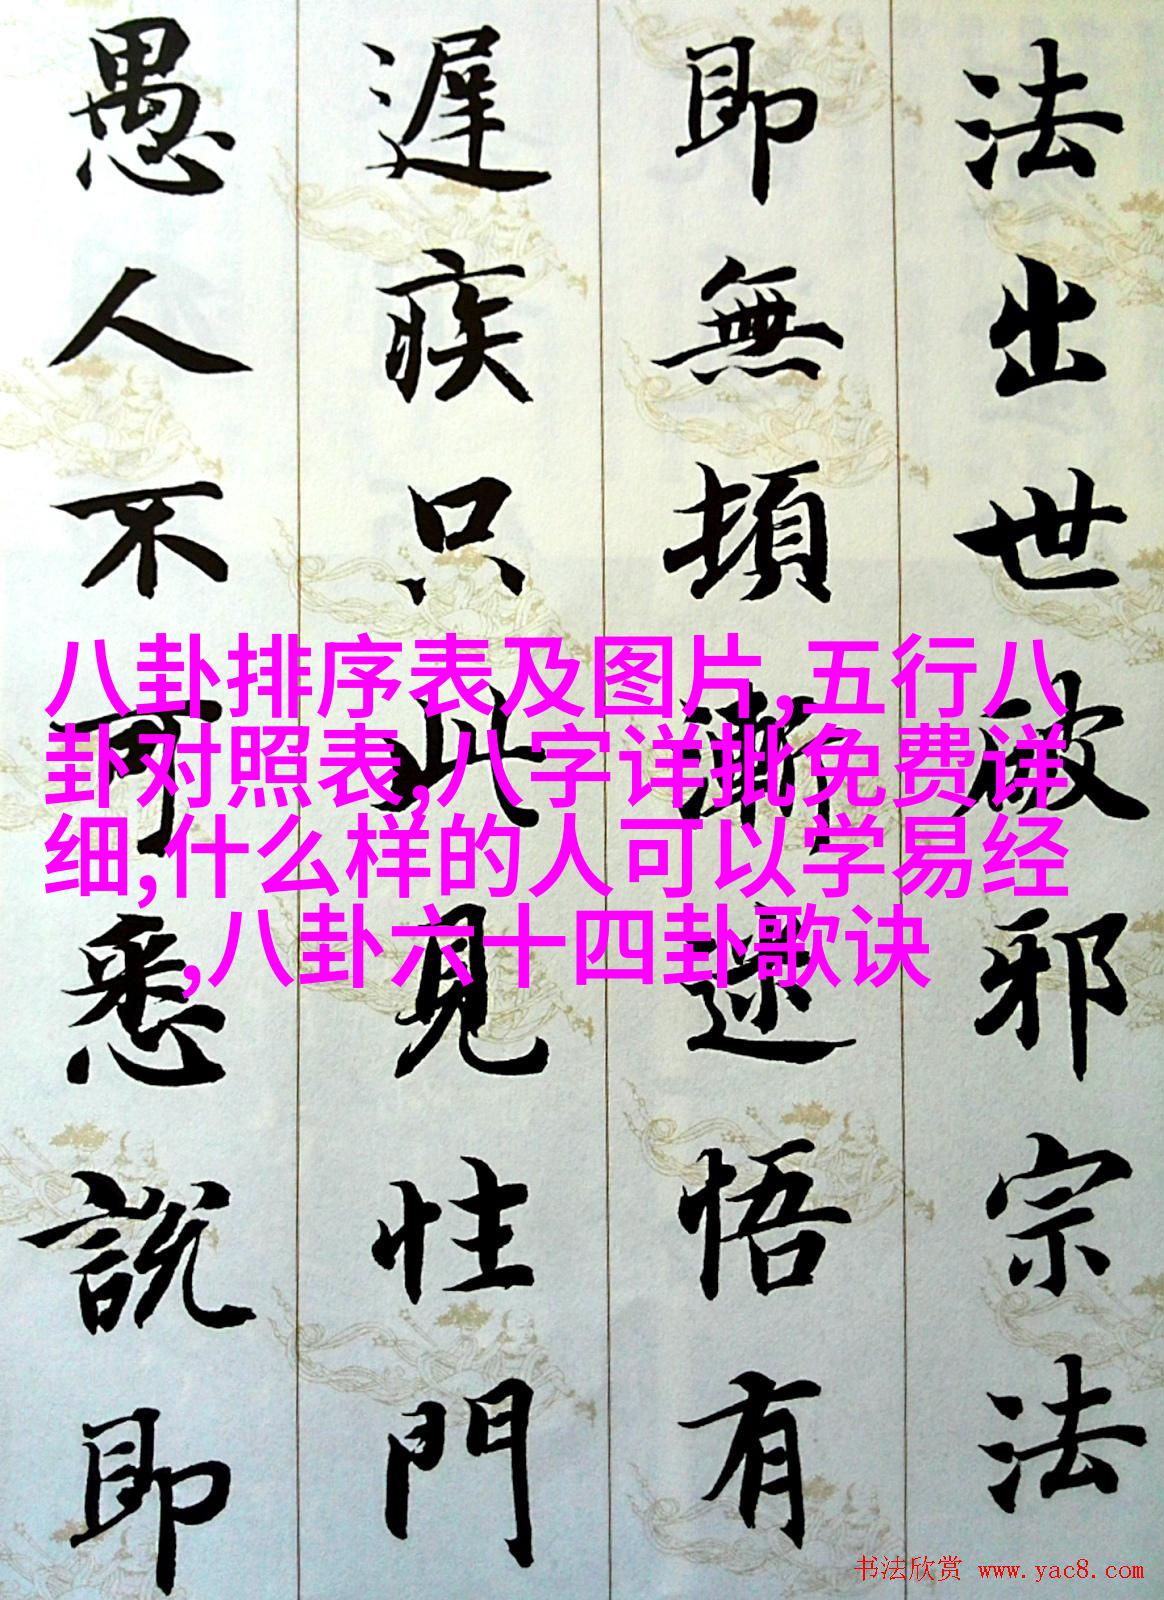 法出世破邪宗法
即無頓漸迷悟有
遲疾只此見性門
愚人不可悉說即
八卦排序表及图片,五行八
卦对照表,八字详批免费详
细,什么样的人可以学易经
,八卦六十四卦歌诀
书法欣赏 www.yac8.com